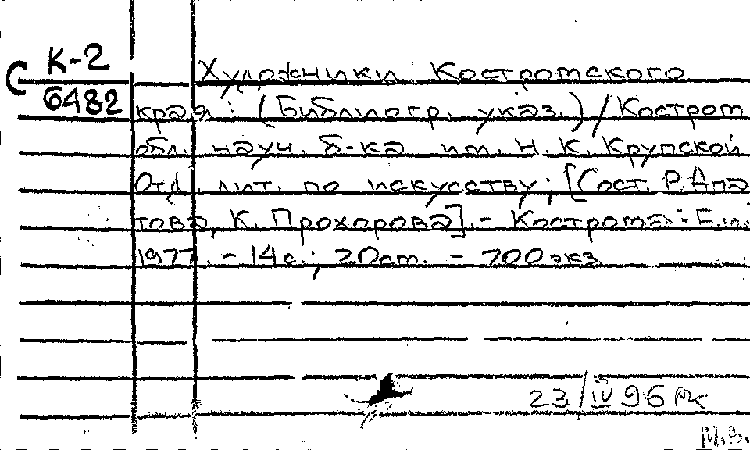 С К-2
6482
Художники Костромского
края: (Библиогр. указ.) / Костром
обл. науч. б-ка им. Н. К. Крупской
Отд. лит. по искусству; [Сост. Р. Лпа
това, К. Прохорова]. - Кострома: Б.и.
1977. - 14 с.; 20 см. - 700 экз
23/IV 96
М.З.